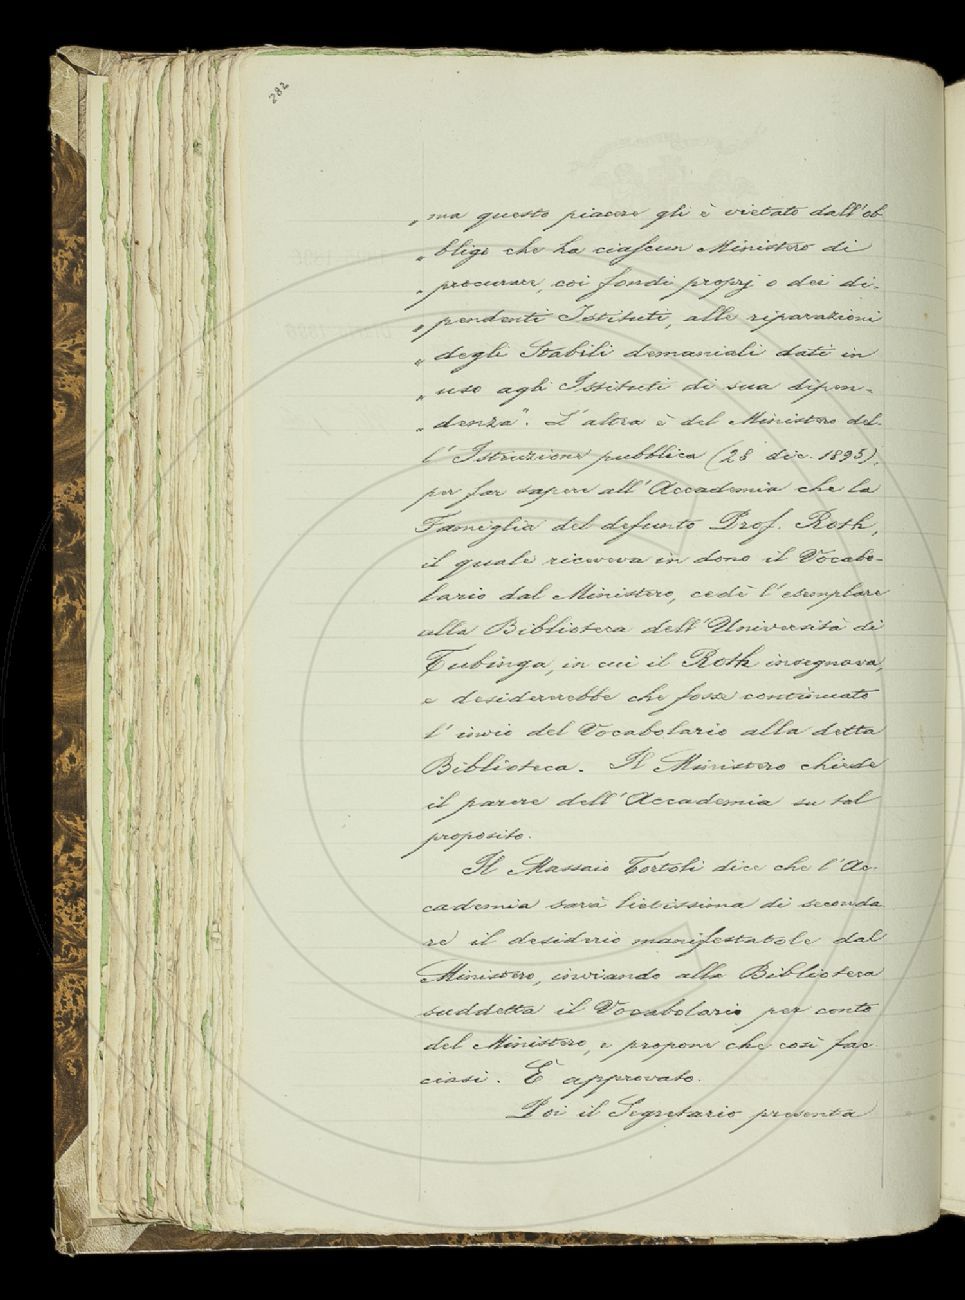 282
„ ma questo piacere gli è vietato dall'ob
„ bligo che ha ciascun Ministero di
„ procurare, coi fondi proprj o dei di-
„ pendenti Istituti, alle riparazioni
„ degli Stabili demaniali dati in
„ uso agli Istituti di sua dipen-
„ denza". L'altra è del Ministero del-
l'Istruzione pubblica (28 dic. 1895),
per far sapere all'Accademia che la
Famiglia del defunto Prof. Roth,
il quale riceveva in dono il Vocabo-
lario dal Ministero, cedè l'esemplare
alla Biblioteca dell'Università di
Tubinga, in cui il Roth insegnava,
e desidererebbe che fosse continuato
l'invio del Vocabolario alla detta
Biblioteca. Il Ministero chiede
il parere dell'Accademia su tal
proposito.
Il Massaio Tortoli dice che l'Ac-
cademia sarà lietissima di seconda
re il desiderio manifestatole dal
Ministero, inviando alla Biblioteca
suddetta il Vocabolario per conto
del Ministero, e propone che così fac
ciasi. È approvato.
Poi il Segretario presenta